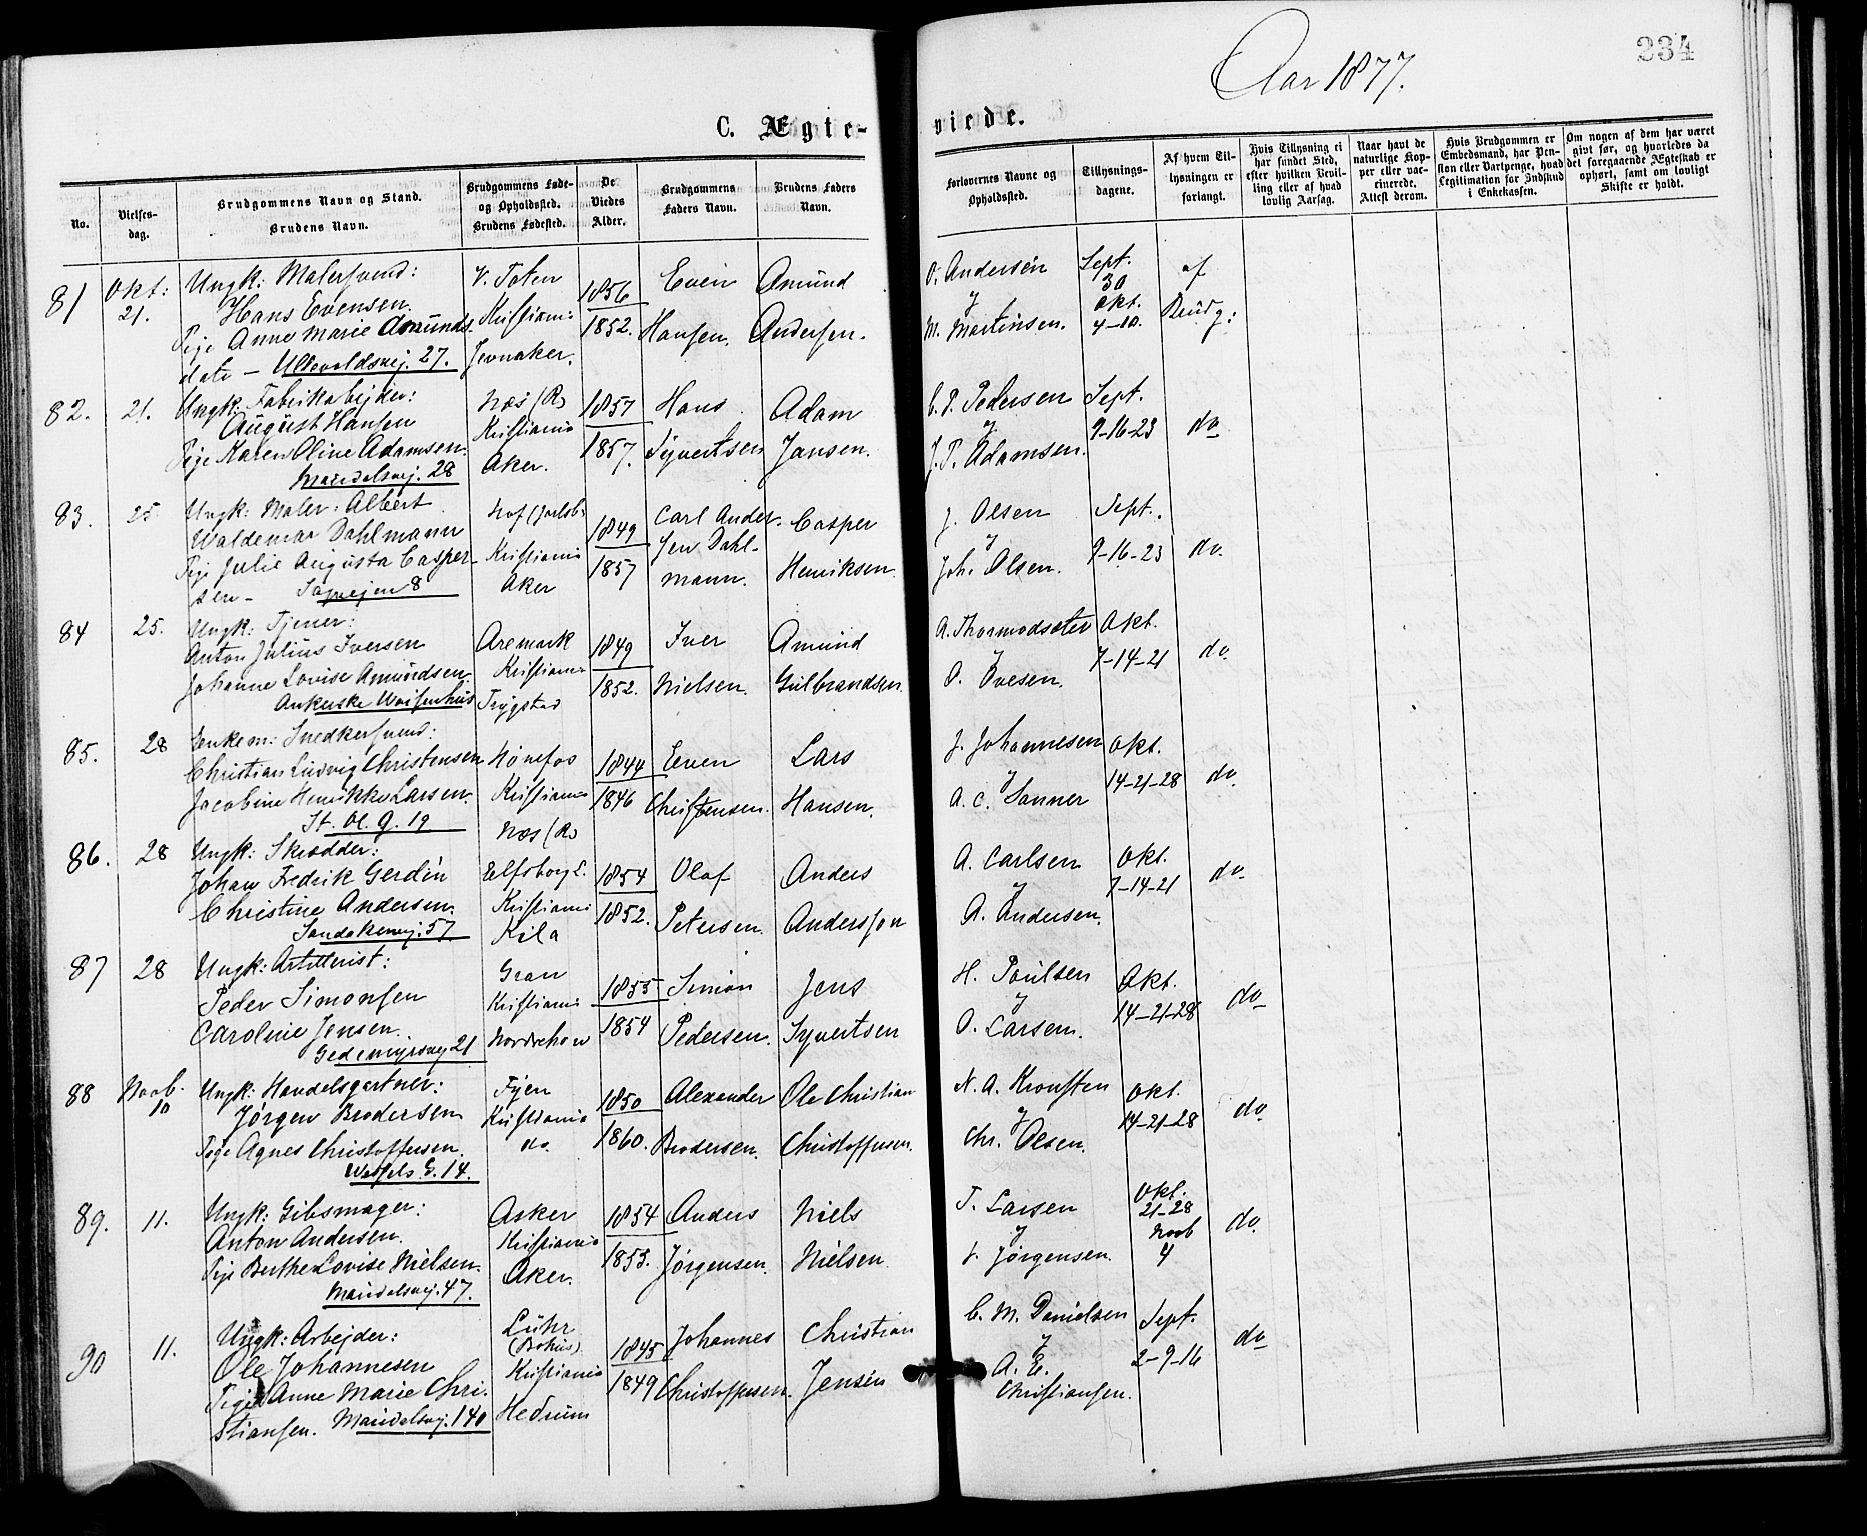 Aar 1877.
234
C. Ægte-
viede.
No.
Vielses-
dag.
Brudgommens Navn og Stand.
Brudens Navn.
Brudgommens Føde-
og Opholdssted.
Brudens Fødested.
De
Viedes
Alder.
Brudgommens
Faders Navn.
Brudens Faders
Navn.
Forlovernes Navne og
Opholdssted.
Tillysnings-
dagene.
Af hvem Til-
lysningen er
forlangt.
Hvis Tillysning ei
har fundet Sted,
efter hvilken Bevil-
ling eller af hvad
lovlig Aarsag.
Naar havt de
naturlige Kop-
per eller vac-
cinerede.
Attest derom.
Hvis Brudgommen er
Embedsmand, har Pen-
sion eller Vartpenge, hvad
Legitimation for Indskud
i Enkekassen.
Om nogen af dem har været
gift før, og hvorledes da
det foregaaende Ægteskab er
ophørt, samt om lovligt
Skifte er holdt.
81
Okt:
21.
Ungk: Malersvend:
Hans Evensen.
Pige Anne Marie Amunds-
datr – Ullevoldsvej. 27.
V. Toten
Kristiania
Jevnaker.
1856
1852.
Even
Hansen.
Amund
Andersen.
O. Andersen
&
M. Martinsen.
Sept.
30
Okt.
7-10.
af
Brudg:
82.
21.
Ungk: Fabrikarbejder:
August Hansen
Pige Karen Oline Adamsen.
Maridalsvej. 28
Næs (R)
Kristiania
Aker.
1857
1857.
Hans
Syvertsen
Adam
Jansen.
C. P. Pedersen
&
J. P. Adamsen.
Sept.
9-16-23
do
83.
25.
Ungk: Maler: Albert
Waldemar Dahlmann
Pige Julie Augusta Casper-
sen – Sagvejen 8
Hof (Jarlsb.
Kristiania
Aker
1849
1857
Carl Ander-
sen Dahl-
mann.
Casper
Henriksen.
J. Olsen
&
Joh. Olsen.
Sept.
9-16-23
do.
84
25.
Ungk: Tjener:
Anton Julius Iversen
Johanne Lovise Amundsen.
Ankerske Waisenhus
Aremark
Kristiania
Trygstad
1849
1852.
Iver
Nielsen.
Amund
Gulbrandsen.
A. Thormodsæter
&
O. Ovesen.
Okt.
7-14-21
do.
85.
28
Enkem: Snedkersvend:
Christian Ludvig Christensen
Jacobine Henrikke Larsen.
St. Ol. G. 19
Hønefos
Kristiania
Næs (R)
1844
1846
Even
Christensen.
Lars
Hansen.
J. Johannesen
&
A. C. Sanner
Okt.
14-21-28
do.
86.
28
Ungk: Skrædder:
Johan Fredrik Gerdin
Christine Andersen.
Sandakervej. 57
Elfsborg L.
Kristiania
Kila
1854
1852.
Olaf
Petersen.
Anders
Andersson
A. Carlsen
&
A. Andersen.
Okt.
7-14-21
do.
87
28
Ungk: Artillerist:
Peder Simonsen
Caroline Jensen.
Gedemyrsvej 21
Gran
Kristiania
Norderhov
1855
1854
Simon
Pedersen.
Jens
Syvertsen
H. Paulsen
&
O. Larsen.
Okt.
14-21-28
do
88
Novb.
10
Ungk: Handelsgartner:
Jørgen Brodersen
Pige Agnes Christoffersen.
Wessels G. 14.
Fyen
Kristiania
do.
1850
1860.
Alexander
Brodersen.
Ole Christian
Christoffersen.
N. A. Kronsten
&
Chr. Olsen.
Okt.
14-21-28
do
89.
11.
Ungk: Gibsmager:
Anton Andersen.
Pige Berthe Lovise Nielsen.
Maridalsvej. 47.
Asker
Kristiania
Aker.
1854
1853.
Anders
Jørgensen.
Niels
Nielsen.
T. Larsen
&
Jørgensen.
Okt.
21-28
Novb
4
do.
90
11.
Ungk: Arbejder:
Ole Johannesen
Pige Anne Marie Chri-
stiansen. Maridalsvej. 140
Luhr
(Bohus)
Kristiania
Hedrum
1845
1849
Johannes
Christoffersen.
Christian
Jensen
C. M. Danielsen
&
A. E.
Christiansen.
Sept.
2-9-16
do